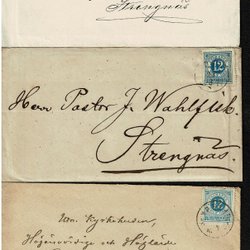 Strengnäs
12
Herr Pastor J. Wahlfisk.
Strengnäs.
12
Om Kyrkoherden,
Högärevördige och Höglärde